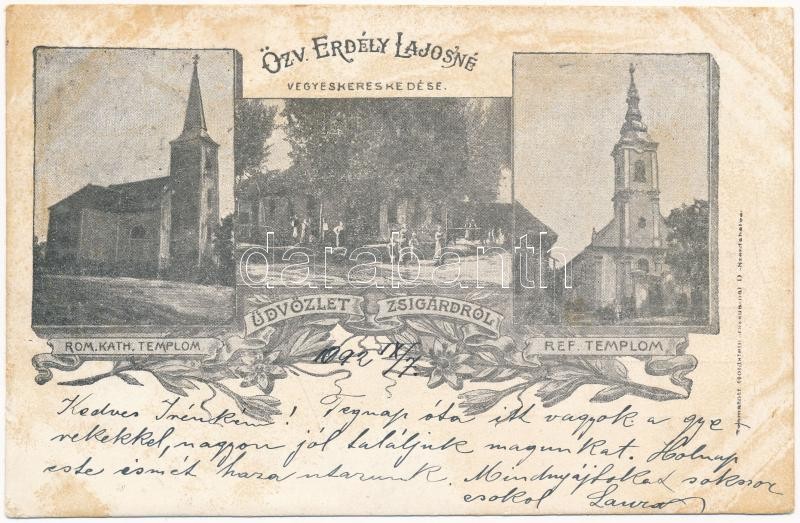 Özv. Erdély Lajosné
VEGYESKERESKEDÉSE.
darabanth
ÜDVÖZLET ZSIGÁRDRÓL
ROM. KATH. TEMPLOM
REF. TEMPLOM
IX/7.
Kedves Irénkém! Tegnap óta itt vagyok a gye
rekekkel, nagyon jól találjuk magunkat. Holnap
este ismét haza utazunk. Mindnyájtokat sokszor
csokol Laura